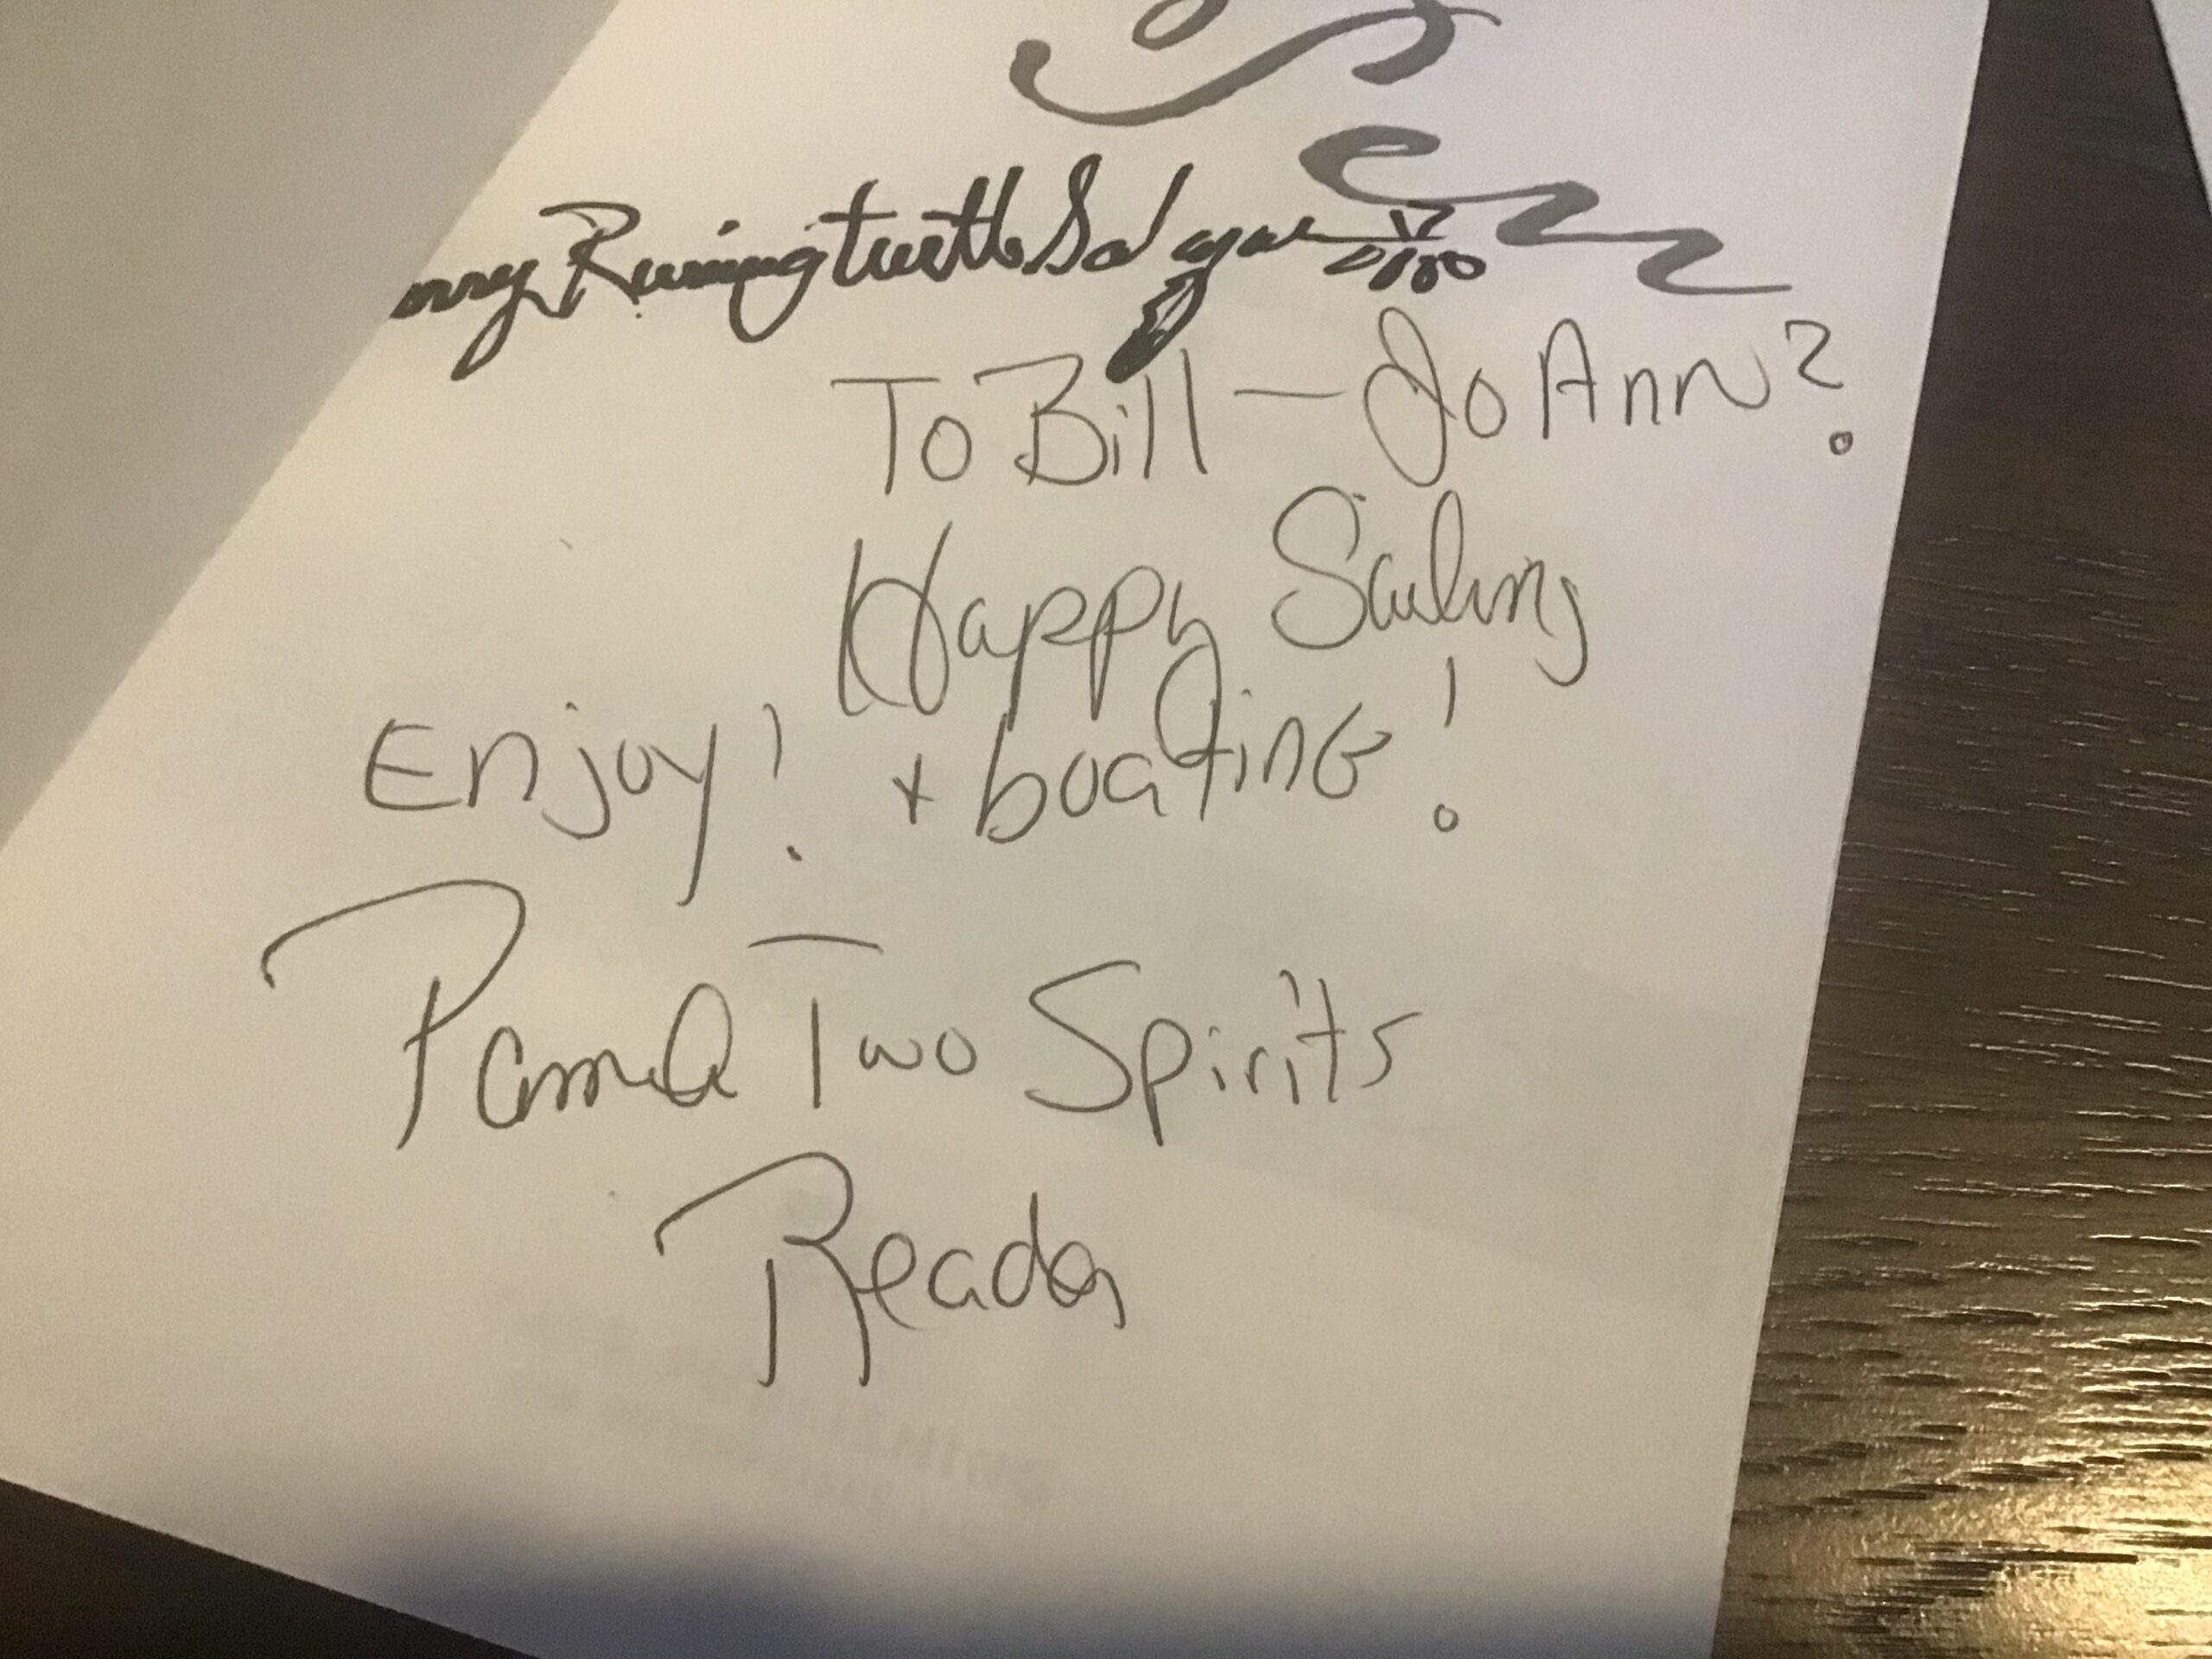 Runningturtle Salgar
To Bill — Jo Ann?
Happy Sailing
Enjoy! + boating!
Pamela Two Spirits
Reader